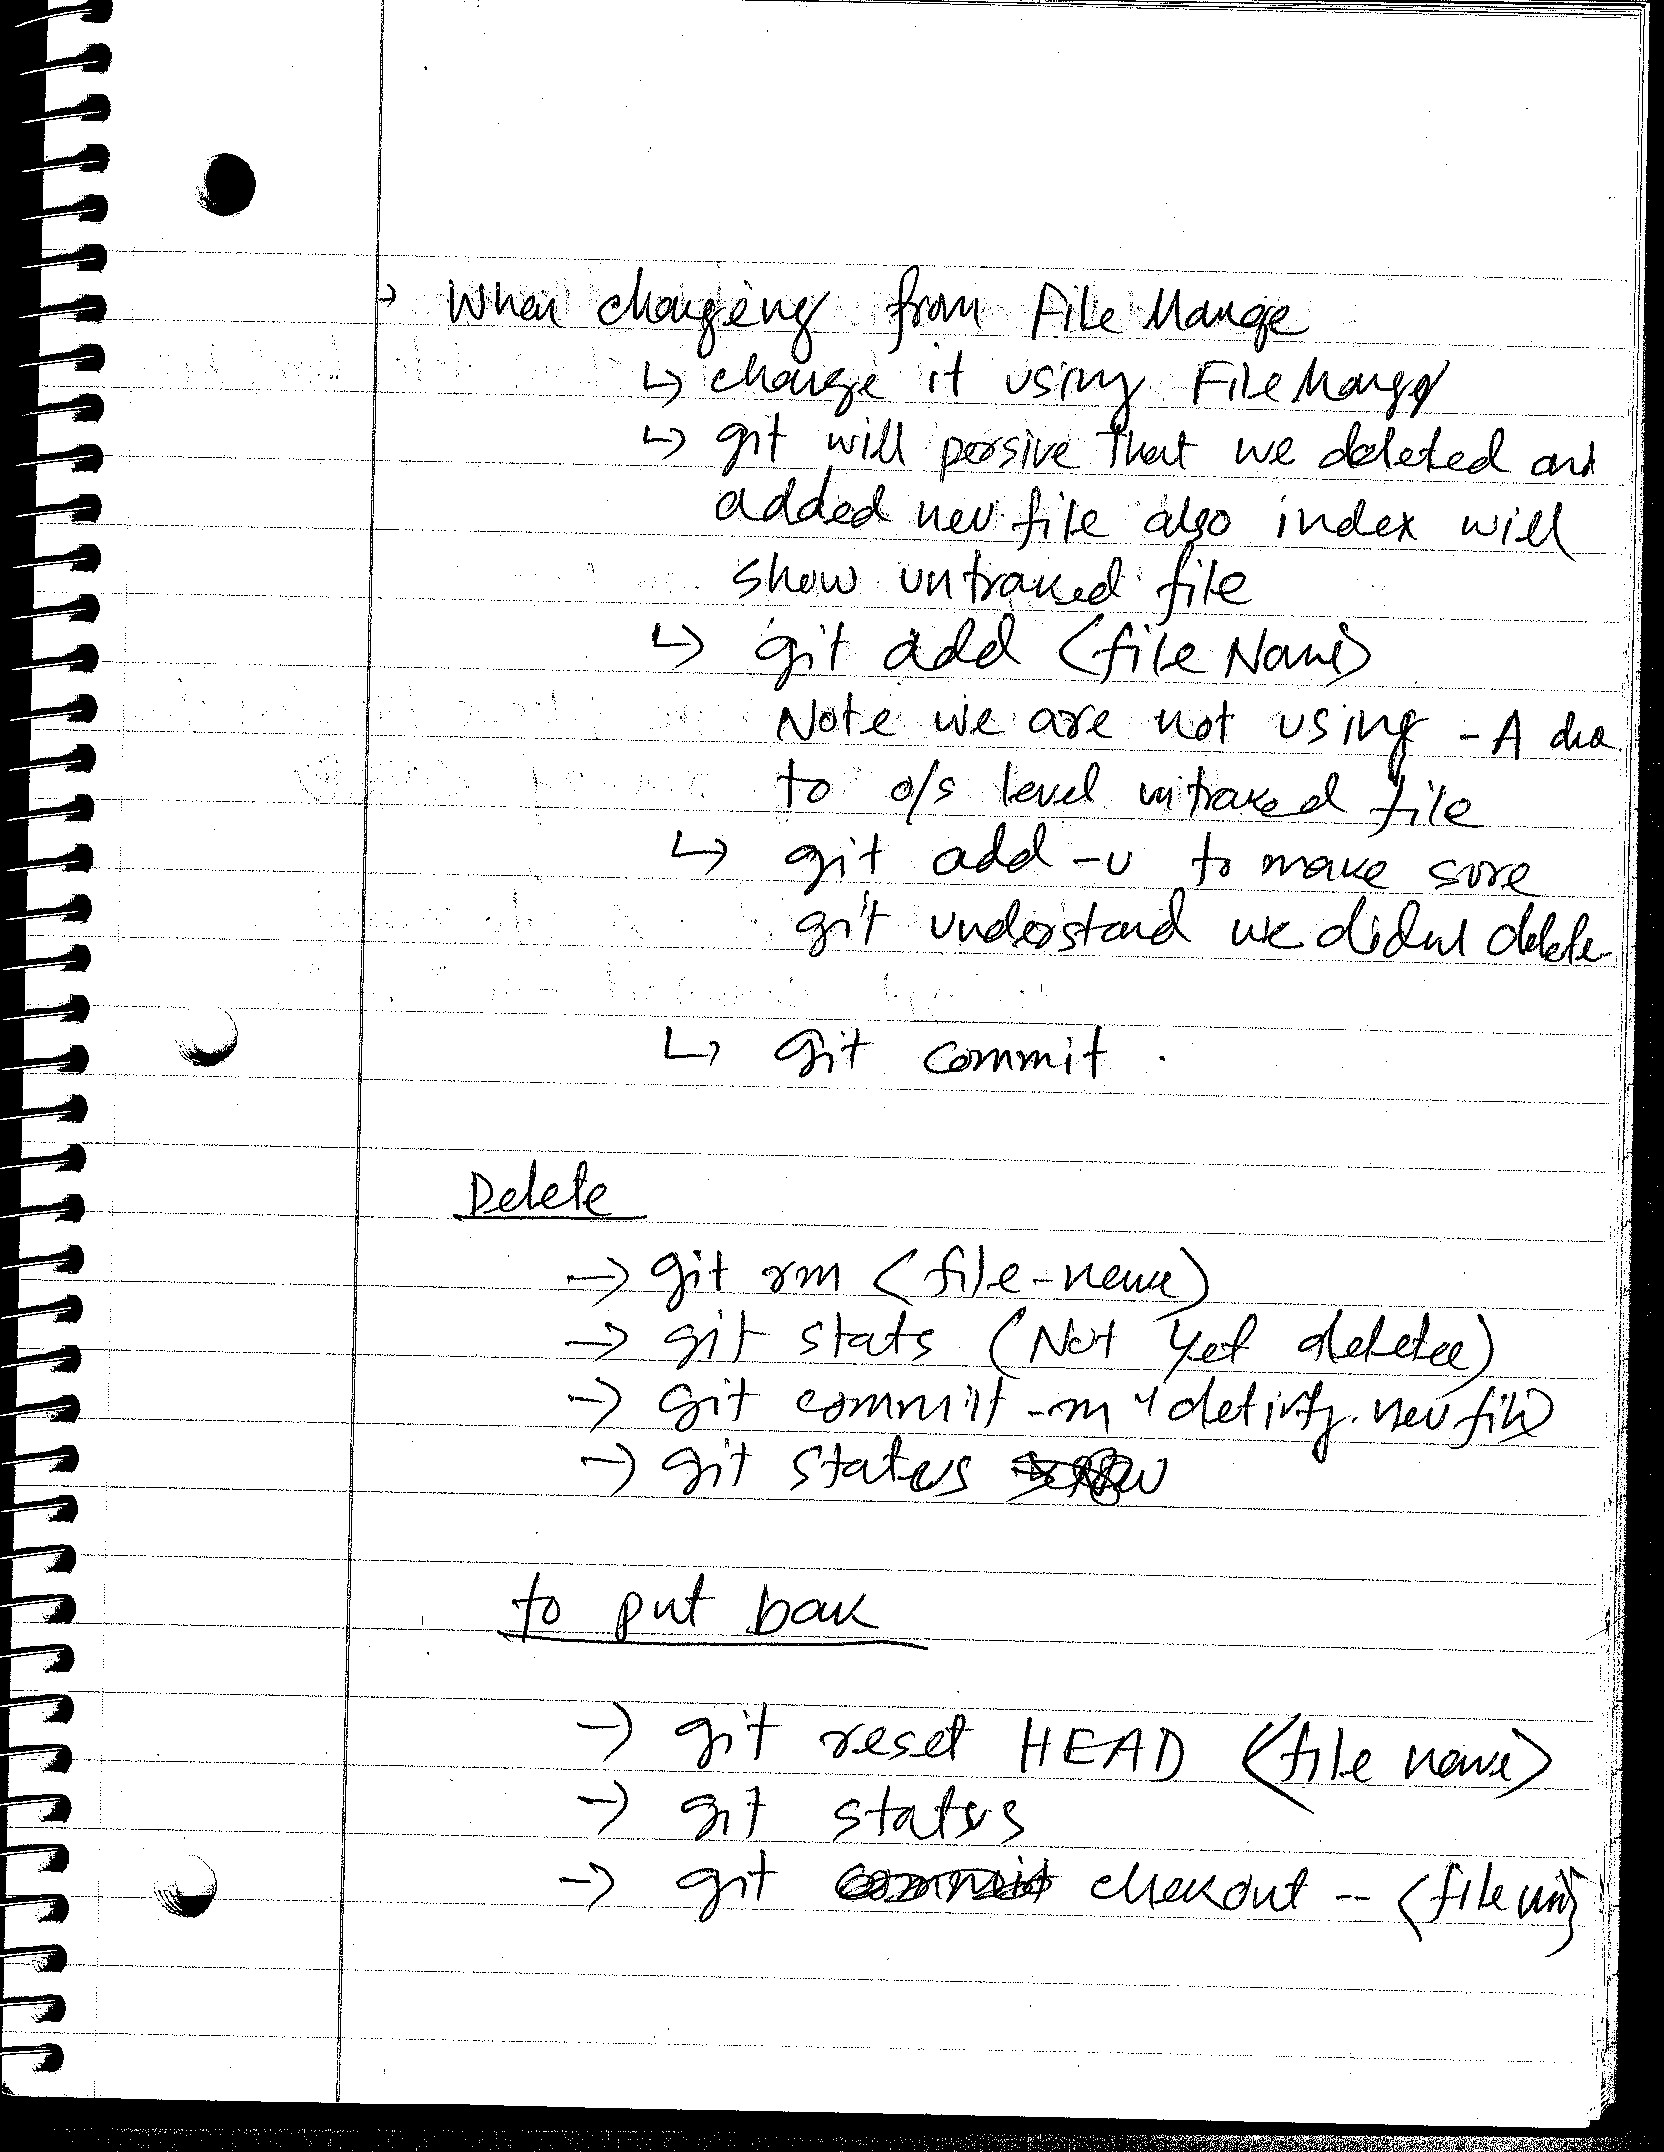 → When changing from File Mange
↳ change it using File Mange
↳ git will persive that we deleted and
added new file also index will
show untraked file
↳ git add <file Name>
Note we are not using -A
to o/s level untraked file
↳ git add -u to make sure
git understand we didnt delete
↳ git commit .
Delete
→ git rm (file-name)
→ git stats (Not yet deletee)
→ git commit -m " new file
→ git status
to put back
→ git reset HEAD <file name>
→ git status
→ git chekout -- <file